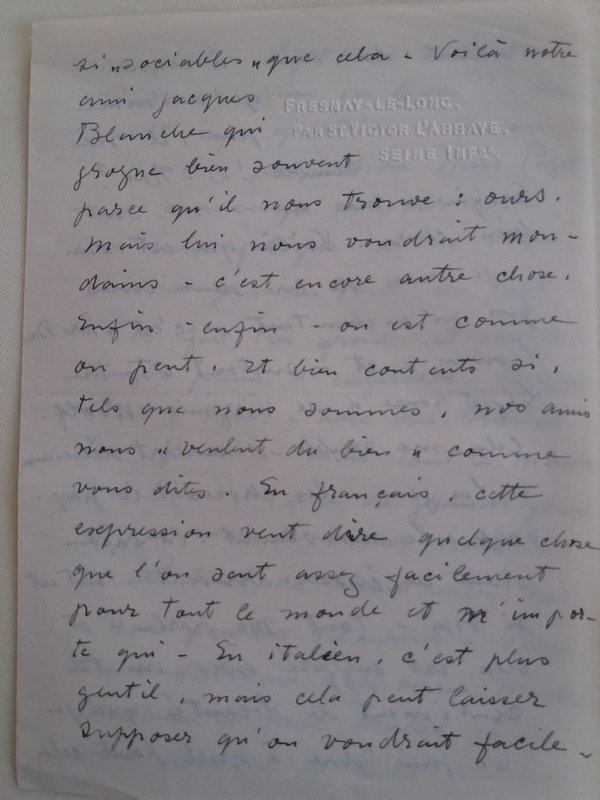 si "sociables" que cela - Voilà notre
ami Jacques
FRESNAY-LE-LONG.
Blanche qui
PAR ST VICTOR L'ABBAYE.
SEINE INFRE.
grogne bien souvent
parce qu'il nous trouve : ours.
Mais lui nous voudrait mon-
dains - c'est encore autre chose.
Enfin - enfin - on est comme
on peut. Et bien contents si,
tels que nous sommes, nos amis
nous "veulent du bien" comme
vous dites. En français, cette
expression veut dire quelque chose
que l'on sent assez facilement
pour tout le monde et n'impor-
te qui - En italien, c'est plus
gentil, mais cela peut laisser
supposer qu'on voudrait facile-